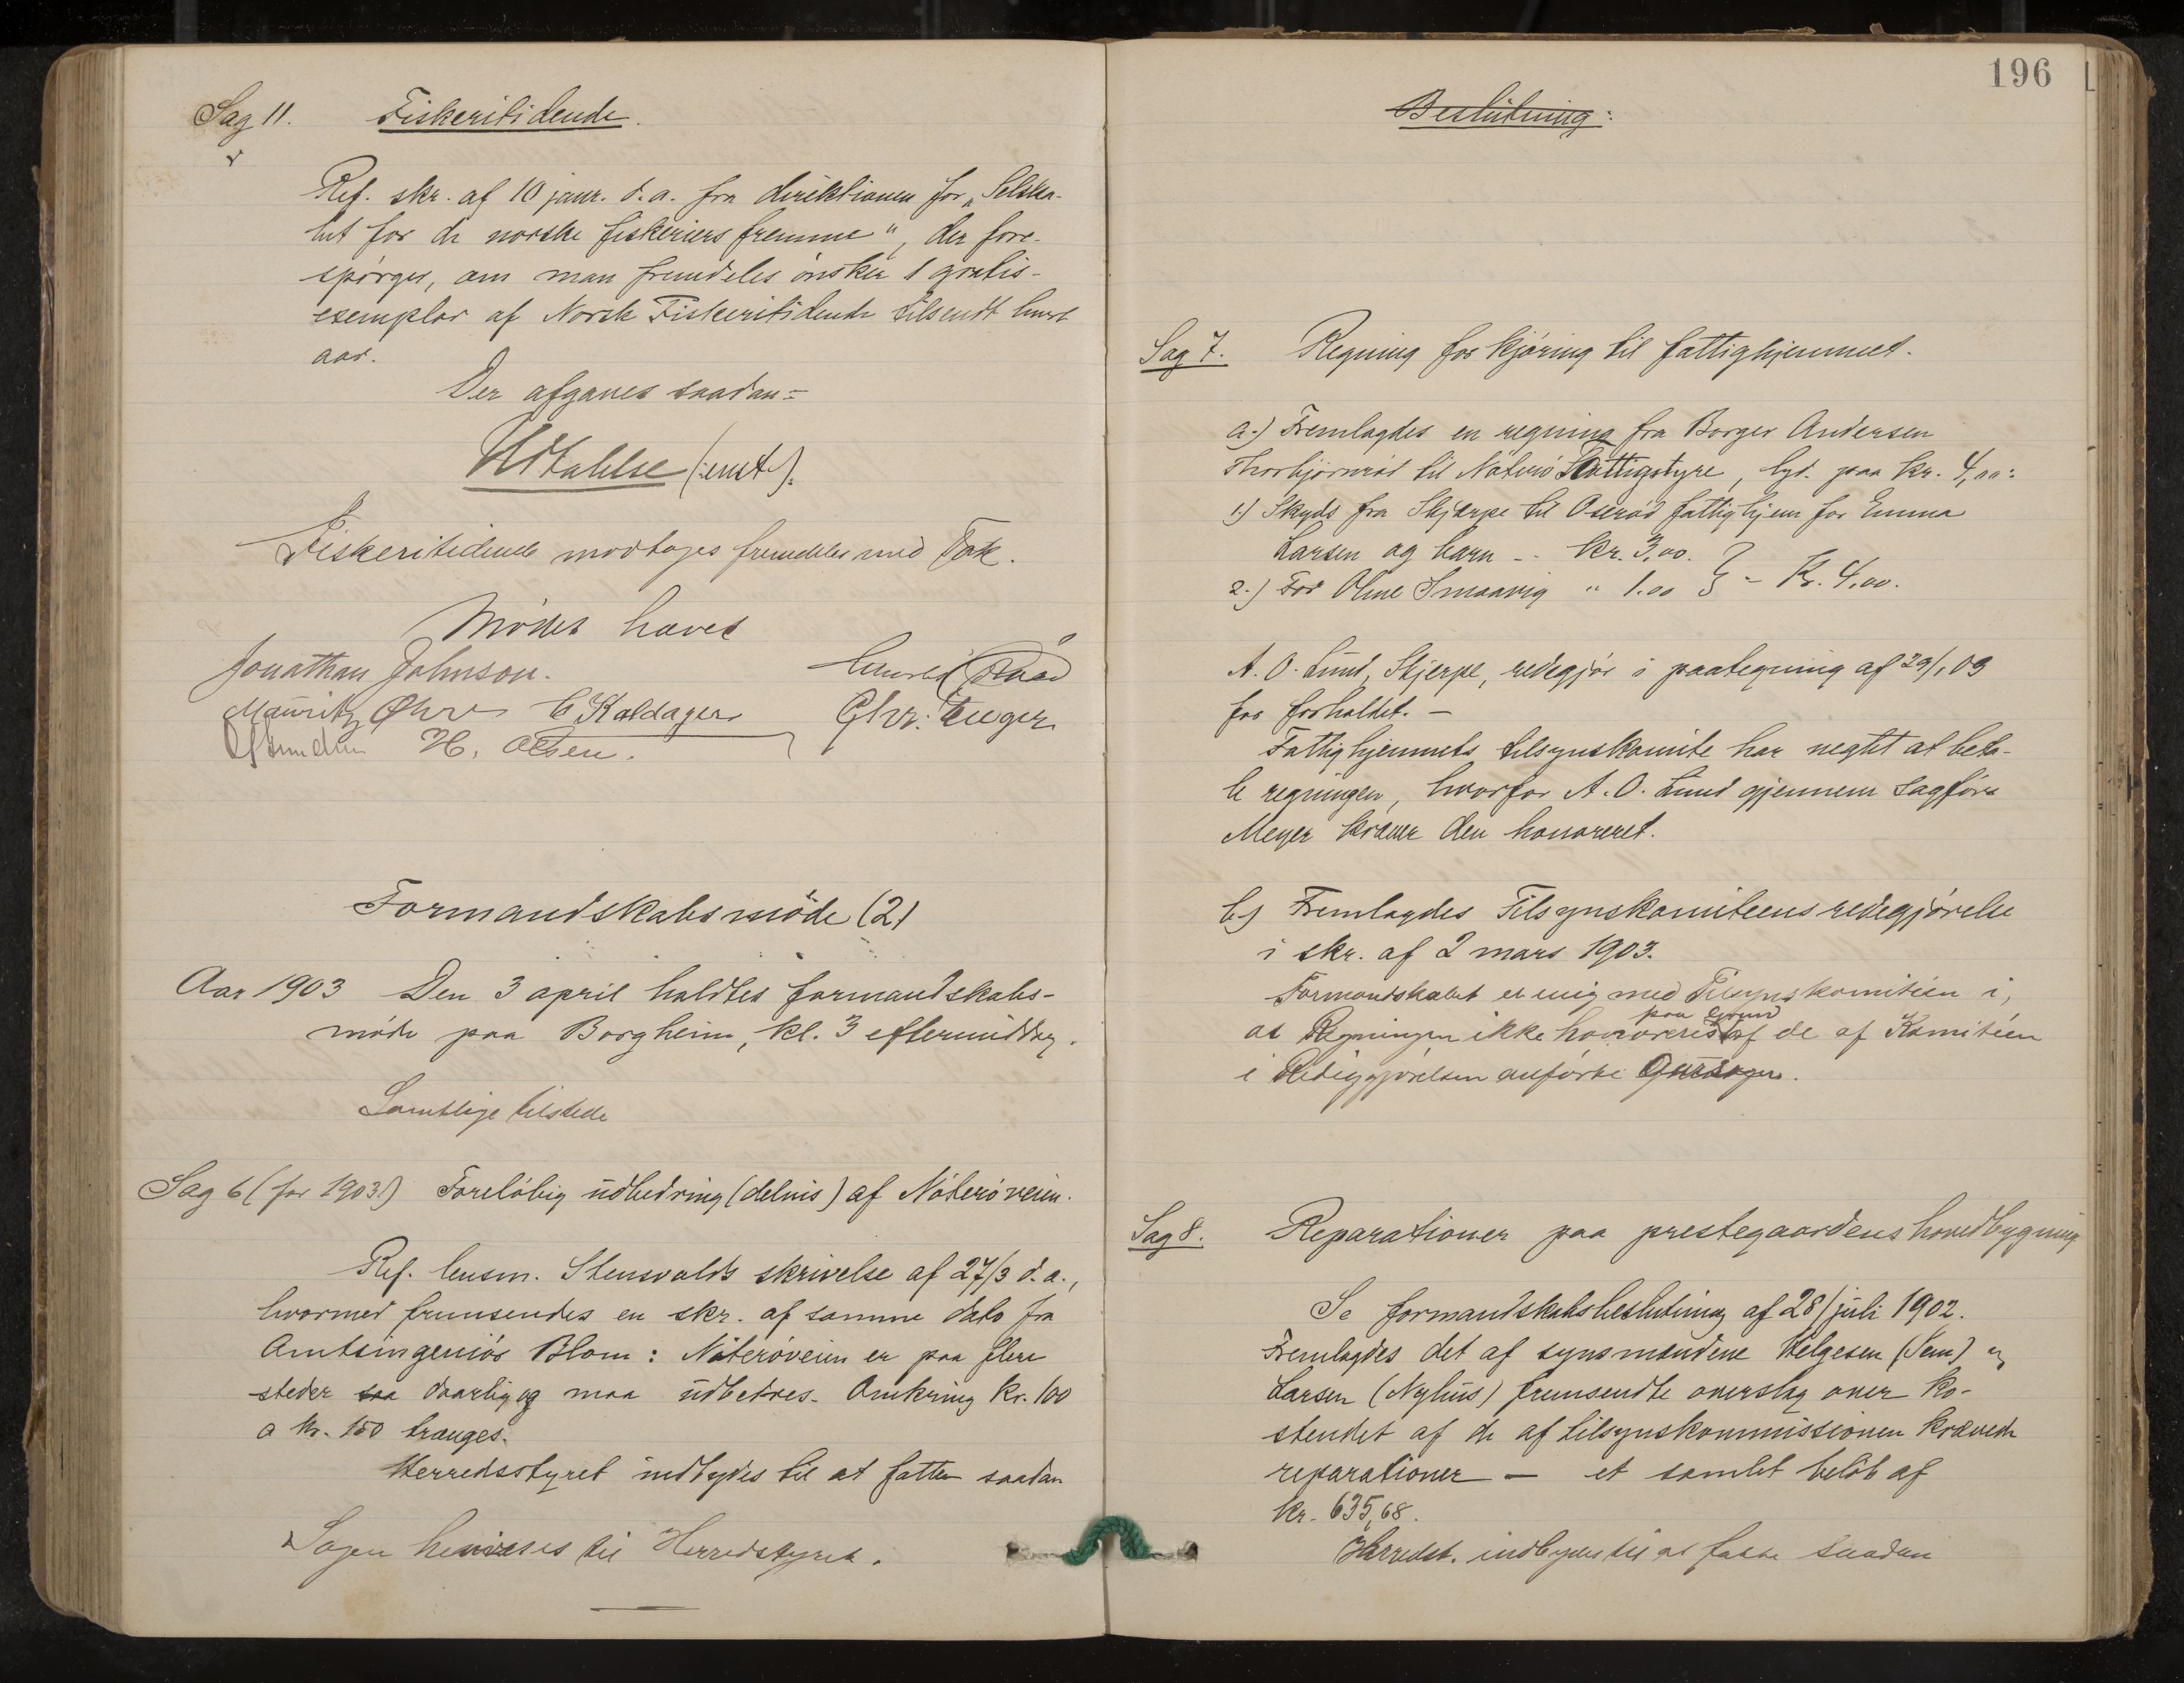 Sag 11. Fiskeritidende.
Ref. skr. af 10 janr. d. a. fra direktionen for „Selska-
bet for de norske fiskeriers fremme", der fore-
spørger, om man fremdeles ønsker 1 gratis-
exemplar af Norsk Fiskeritidende tilsendt hvert
aar.
Der afgaves saadan=
Udtalelse (:emt:).
Fiskeritidende modtages fremdeles med Tak.
Mødet hævet
Jonathan Johnson.
Mauritz Øhre C Kaldager Chr:
H. Olsen.
Formandskabsmøde (2)
Aar 1903 Den 3 april holdtes formandskabs-
møde paa Borgheim, kl. 3 eftermiddag.
Samtlige tilstede
Sag 6 (for 1903.) Foreløbig udbedring (delvis) af Nøterøveien.
Ref. lensm. Stensvolds skrivelse af 27/3 d. a.,
hvormed fremsendes en skr. af samme dato fra
Amtsingeniør Blom: Nøterøveien er paa flere
steder saa daarlig og maa udbedres. Omkring kr. 100
a kr. 150 trænges.
Herredsstyret indbydes til at fatte saadan
Sagen henvises til Herredstyret.
196
Beslutning:
Sag 7. Regning for kjøring til fattighjemmet.
a.) Fremlagdes en regning fra Borger Andersen
Thorbjørnrød til Nøterø Fattigstyre, lyd. paa kr. 4,00:
1.) Skyds fra Skjerpe til Oserød fattighjem for Emma
Larsen og barn -- kr. 3,00.
2.) For Oline Smaavig " 1.00 } - Kr. 4,00.
A. O. Lund, Skjerpe, redegjør i paategning af 29/1 03
for forholdet. —
Fattighjemmets tilsynskomite har negtet at beta-
le regningen, hvorfor A. O. Lund gjennem Sagfører
Meyer kræver den honoreret.
b.) Fremlagdes Tilsynskomiteens redegjørelse
i skr. af 2 mars 1903.
Formandskabet er enig med Tilsynskomitéen i,
paa Grund
at Regningen ikke honoreres af de af Komitéen
i Redegjørelsen anførte
Sag 8. Reparationer paa prestegaardens hovedbygning
Se formandskabsbeslutning af 28/juli 1902.
Fremlagdes det af synsmændene Helgesen (Sem) og
Larsen (Nylius) fremsendte overslag over ko-
stendet af de af tilsynskommissionen krævede
reparationer — et samlet beløb af
kr. 635,68.
Herredst. indbydes til at fatte saadan